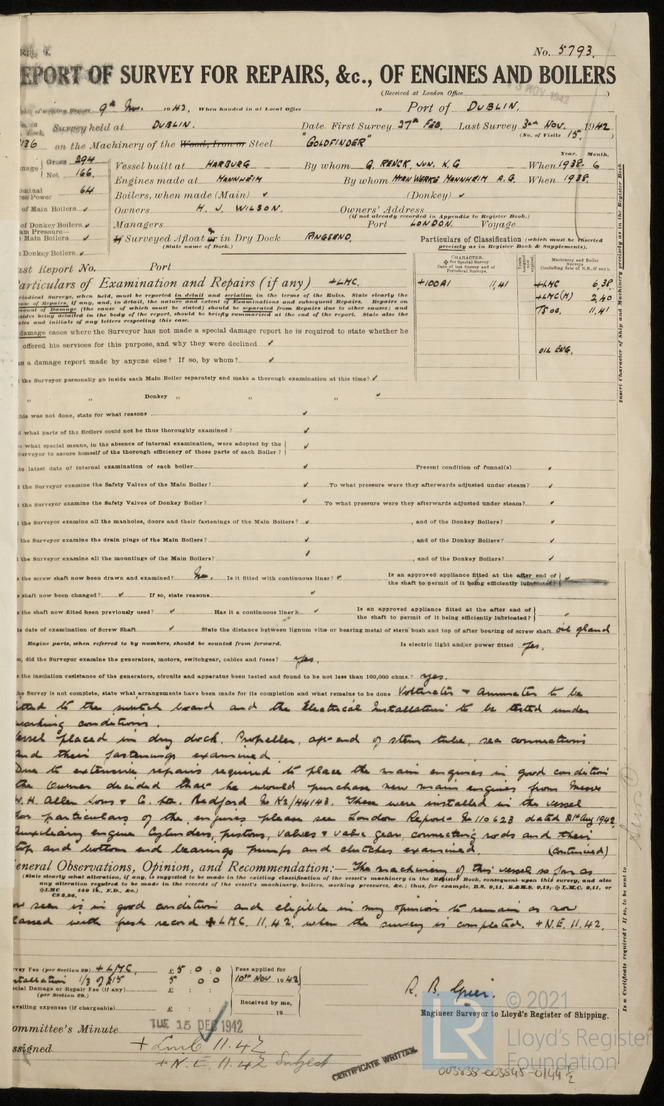 No. 5793.
REPORT OF SURVEY FOR REPAIRS, &c., OF ENGINES AND BOILERS
(Received at London Office
NOV 1942
9th Nov. 1942. When handed in at Local Office 19 Port of DUBLIN.
Survey held at DUBLIN. Date, First Survey 27th FEB. Last Survey 3rd NOV. 1942
(No. of Visits 15)
on the Machinery of the Wood, Iron or Steel "GOLDFINDER"
Gross 294
Net 166.
Vessel built at HARBURG By whom G. RENCK, JUN. K.G When 1938. 6
Year. Month.
64
Engines made at MANNHEIM By whom MANNHEIM A.G. When 1938.
Boilers, when made (Main) ✓ (Donkey) ✓
of Main Boilers ✓
Owners H. J. WILSON. Owners' Address
(if not already recorded in Appendix to Register Book.)
of Donkey Boilers ✓
Managers Port LONDON. Voyage
Main Boilers ✓
If Surveyed Afloat or in Dry Dock RINGSEND.
(State name of Dock.)
Donkey Boilers ✓
Particulars of Classification (which must be inserted precisely as in the Register Book & Supplements).
Last Report No. Port
Particulars of Examination and Repairs (if any) +LMC.
CHARACTER.
+100A1 11,41
Machinery and Boiler Surveys
+LMC 6,38
+LMC(M) 2,40
TS OG. 11,41
OIL ENG.
damage cases where the Surveyor has not made a special damage report he is required to state whether he
offered his services for this purpose, and why they were declined ✓
a damage report made by anyone else? If so, by whom? ✓
the Surveyor personally go inside each Main Boiler separately and make a thorough examination at this time? ✓
" " Donkey " " " ✓
this was not done, state for what reasons ✓
what parts of the Boilers could not be thus thoroughly examined? ✓
what special means, in the absence of internal examination, were adopted by the
Surveyor to assure himself of the thorough efficiency of those parts of each Boiler? ✓
latest date of internal examination of each boiler ✓ Present condition of funnel(s) ✓
the Surveyor examine the Safety Valves of the Main Boiler? ✓ To what pressure were they afterwards adjusted under steam? ✓
the Surveyor examine the Safety Valves of Donkey Boiler? ✓ To what pressure were they afterwards adjusted under steam? ✓
the Surveyor examine all the manholes, doors and their fastenings of the Main Boilers? ✓, and of the Donkey Boilers? ✓
the Surveyor examine the drain plugs of the Main Boilers? ✓, and of the Donkey Boilers? ✓
the Surveyor examine all the mountings of the Main Boilers? ✓, and of the Donkey Boilers? ✓
the screw shaft now been drawn and examined? No. Is it fitted with continuous liner? ✓ Is an approved appliance fitted at the after end of
the shaft to permit of it being efficiently lubricated? ✓
shaft now been changed? ✓ If so, state reasons ✓
the shaft now fitted been previously used? ✓ Has it a continuous liner? ✓ Is an approved appliance fitted at the after end of
the shaft to permit of it being efficiently lubricated? ✓
date of examination of Screw Shaft ✓ State the distance between lignum vitæ or bearing metal of stern bush and top of after bearing of screw shaft oil gland
Engine parts, when referred to by numbers, should be counted from forward. Is electric light and/or power fitted Yes.
did the Surveyor examine the generators, motors, switchgear, cables and fuses? Yes.
the insulation resistance of the generators, circuits and apparatus been tested and found to be not less than 100,000 ohms? Yes.
the Survey is not complete, state what arrangements have been made for its completion and what remains to be done Voltmeter + Ammeter to be
fitted to the switch board and the Electrical Installation to be tested under
working conditions.
Vessel placed in dry dock. Propeller, aft end of stern tube, sea connections
and their fastenings examined.
Due to extensive repairs required to place the main engines in good condition
the Owner decided that he would purchase new main engines from Messrs
W. H. Allen Sons & Co. Ltd. Bedford These were installed in the vessel
for particulars of the engines please see London Report No 110623 dated 21st Aug 1942
Auxiliary engine cylinders, pistons, valves & valve gear, connecting rods and their
top and bottom end bearings pumps and clutches examined. (Continued)
General Observations, Opinion, and Recommendation:— The machinery of this vessel so far as
now seen is in good condition and eligible in my opinion to remain as now
classed with fresh record +LMC. 11.42. when the survey is completed. +N.E. 11.42.
Survey Fee (per Section 29) +LMC £ 5 : 0 : 0
Installation 1/3 of £15 5 0 0
Special Damage or Repair Fee (if any) £ : :
(per Section 29.)
Travelling expenses (if chargeable) £ : :
Fees applied for
10th Nov 1942
Received by me,
19
R. B. Grier.
Engineer Surveyor to Lloyd's Register of Shipping.
Committee's Minute TUE 15 DEC 1942
Assigned + LMC 11.42
+ N.E. 11.42 Subject
CERTIFICATE WRITTEN
Insert Character of Ship and Machinery precisely as in the Register Book
Is a Certificate required? If so, to be sent to
LR © 2021
Lloyd's Register
Foundation
003838-003845-0144 1/2